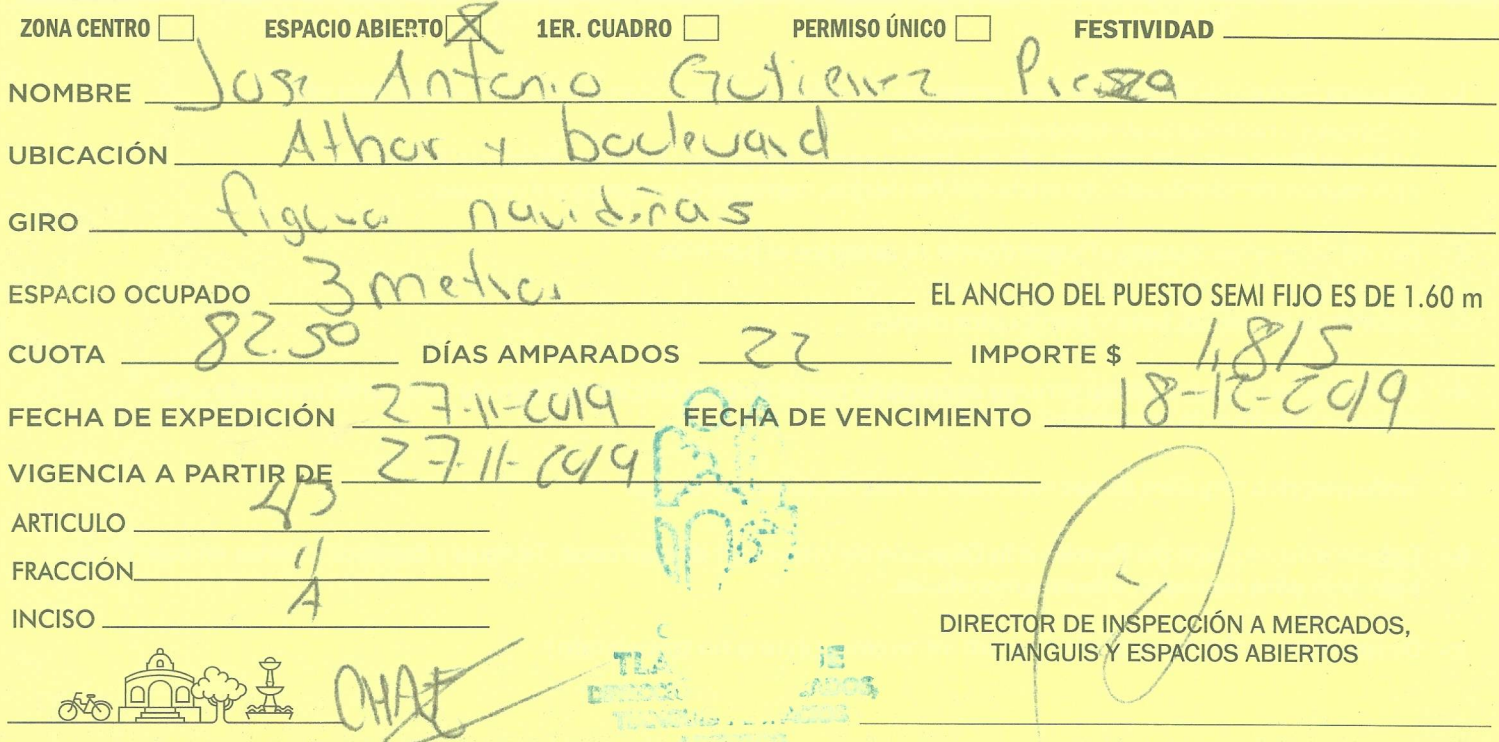 ZONA CENTRO ESPACIO ABIERTO X 1ER. CUADRO PERMISO ÚNICO FESTIVIDAD
NOMBRE Jose Antonio Gutierrez
UBICACIÓN Athor y boulevard
GIRO figura navideñas
ESPACIO OCUPADO 3 metros EL ANCHO DEL PUESTO SEMI FIJO ES DE 1.60 m
CUOTA 82.50 DÍAS AMPARADOS 22 IMPORTE $ 1,815
FECHA DE EXPEDICIÓN 27-11-2019 FECHA DE VENCIMIENTO 18-12-2019
VIGENCIA A PARTIR DE 27-11-2019
ARTICULO 43
FRACCIÓN
INCISO A
DIRECTOR DE INSPECCIÓN A MERCADOS,
TIANGUIS Y ESPACIOS ABIERTOS